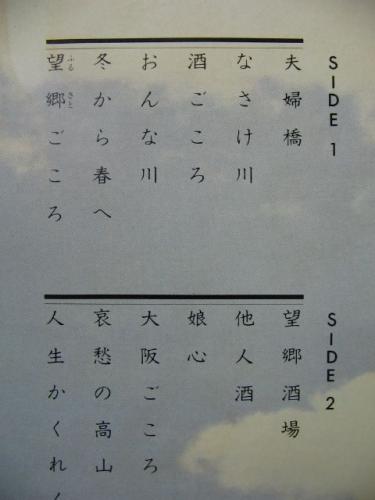 SIDE 1
夫婦橋
なさけ川
酒ごころ
おんな川
冬から春へ
望郷ごころ
ふるさと
SIDE 2
望郷酒場
他人酒
娘心
大阪ごころ
哀愁の高山
人生かくれ